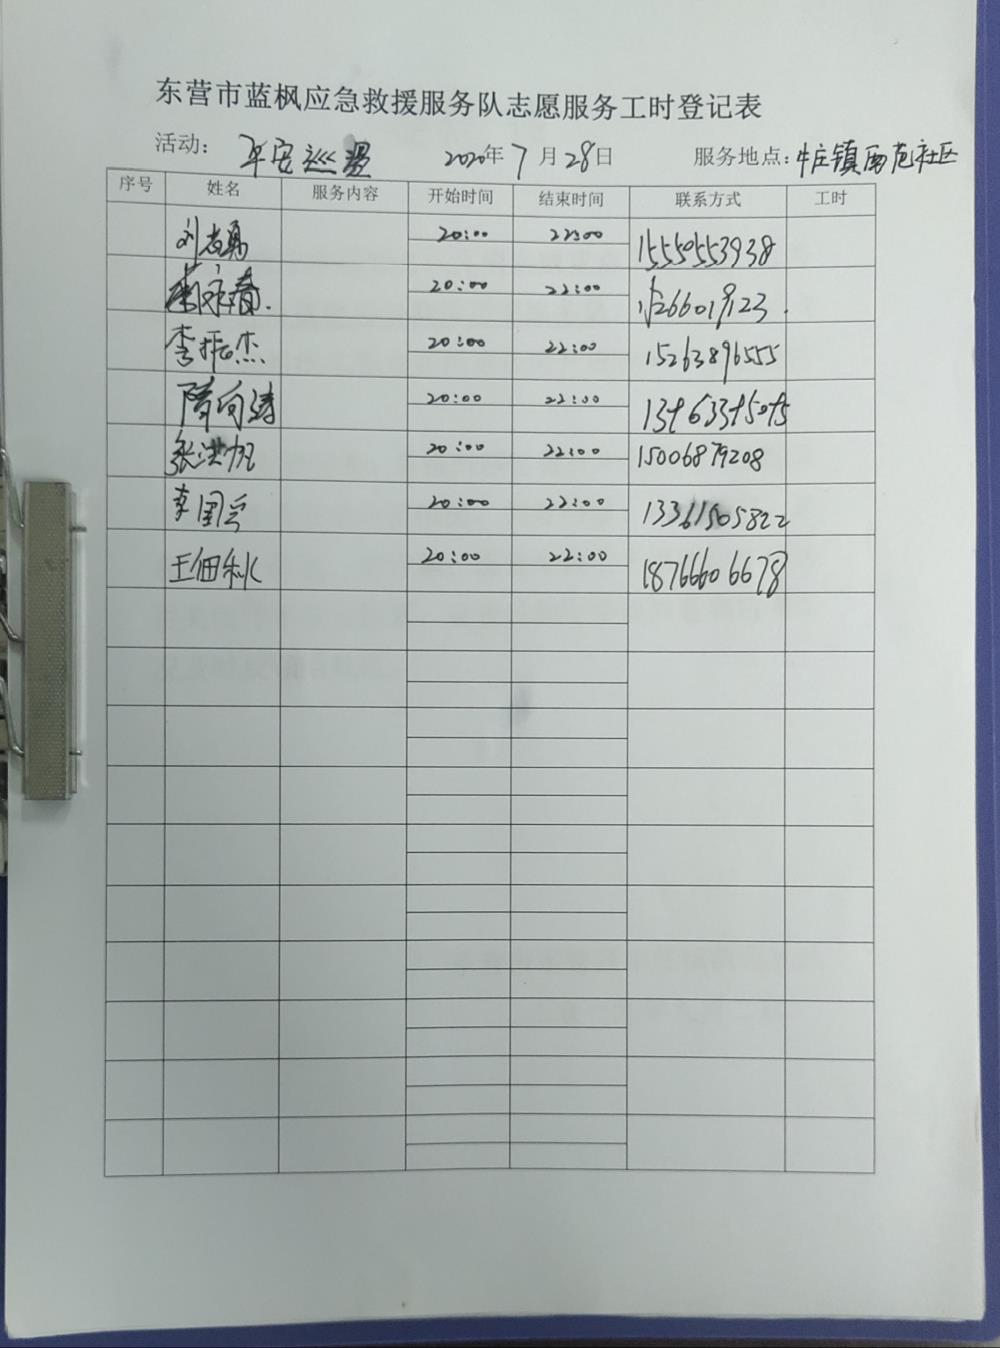 东营市蓝枫应急救援服务队志愿服务工时登记表
活动： 平安巡逻 2020年7月28日 服务地点：牛庄镇西范社区
序号 姓名 服务内容 开始时间 结束时间 联系方式 工时
刘志勇 20:00 22:00 15550553938
永春 20:00 22:00
李振杰 20:00 22:00 15263896555
隋向涛 20:00 22:00
张洪帆 20:00 22:00 15006879208
李国 20:00 22:00 13361505822
王佃秋 20:00 22:00 18766606678